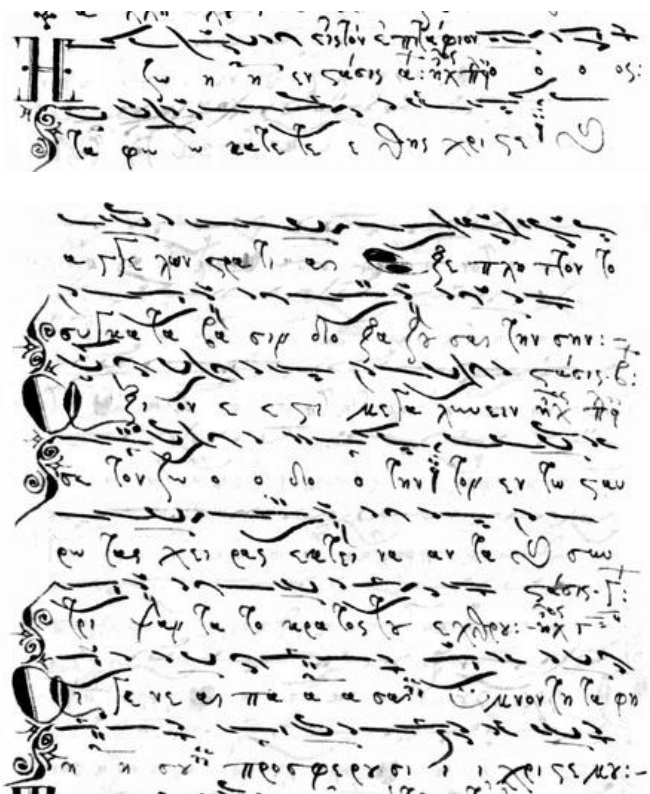 εἰς τὸν ἐπιτάφιον
Η ζω η η εν στάσις α: ἦχ πλ
τα φω ω κατε τε ε θης χρι στε
α γγε λων στρα τι αι ξε πλη ττον το
συγκα τα βα σιν δο ξα ζου σαι την σην:
στάσις β:
ξι ον ε ε στι μεγα λυνειν ἦχ πλ
σε τον ζω ο ο δο ο την τον εν τω σταυ
ρω τας χει ρας εκτει να αν τα συν
στάσις γ:
τρι ψαν τα το κρα τος του εχθρου: ἦχ
ι γε νε αι πα α α σαι υμνον τη τα φη
η η σου προσφερουσι ι ι χριστε μου:-